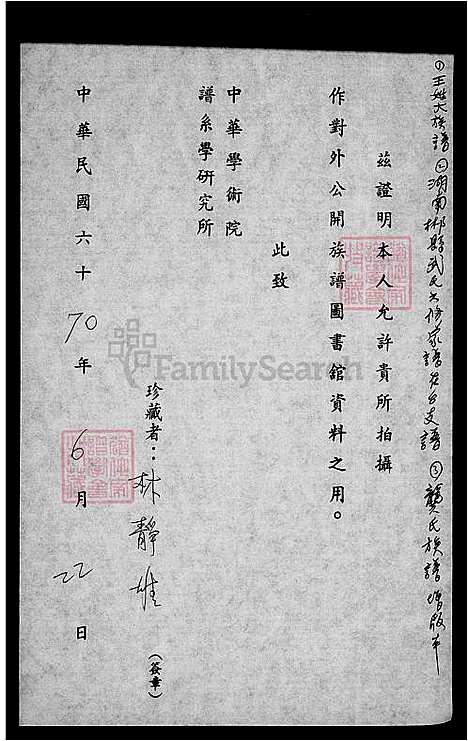 ①王姓大族譜②湖南郴縣武氏六修家譜在台支譜③龔氏族譜增版本
茲證明本人允許貴所拍攝
作對外公開族譜圖書館資料之用。
此致
中華學術院
譜系學研究所
珍藏者：林靜雄（簽章）
中華民國六十70年6月22日
FamilySearch